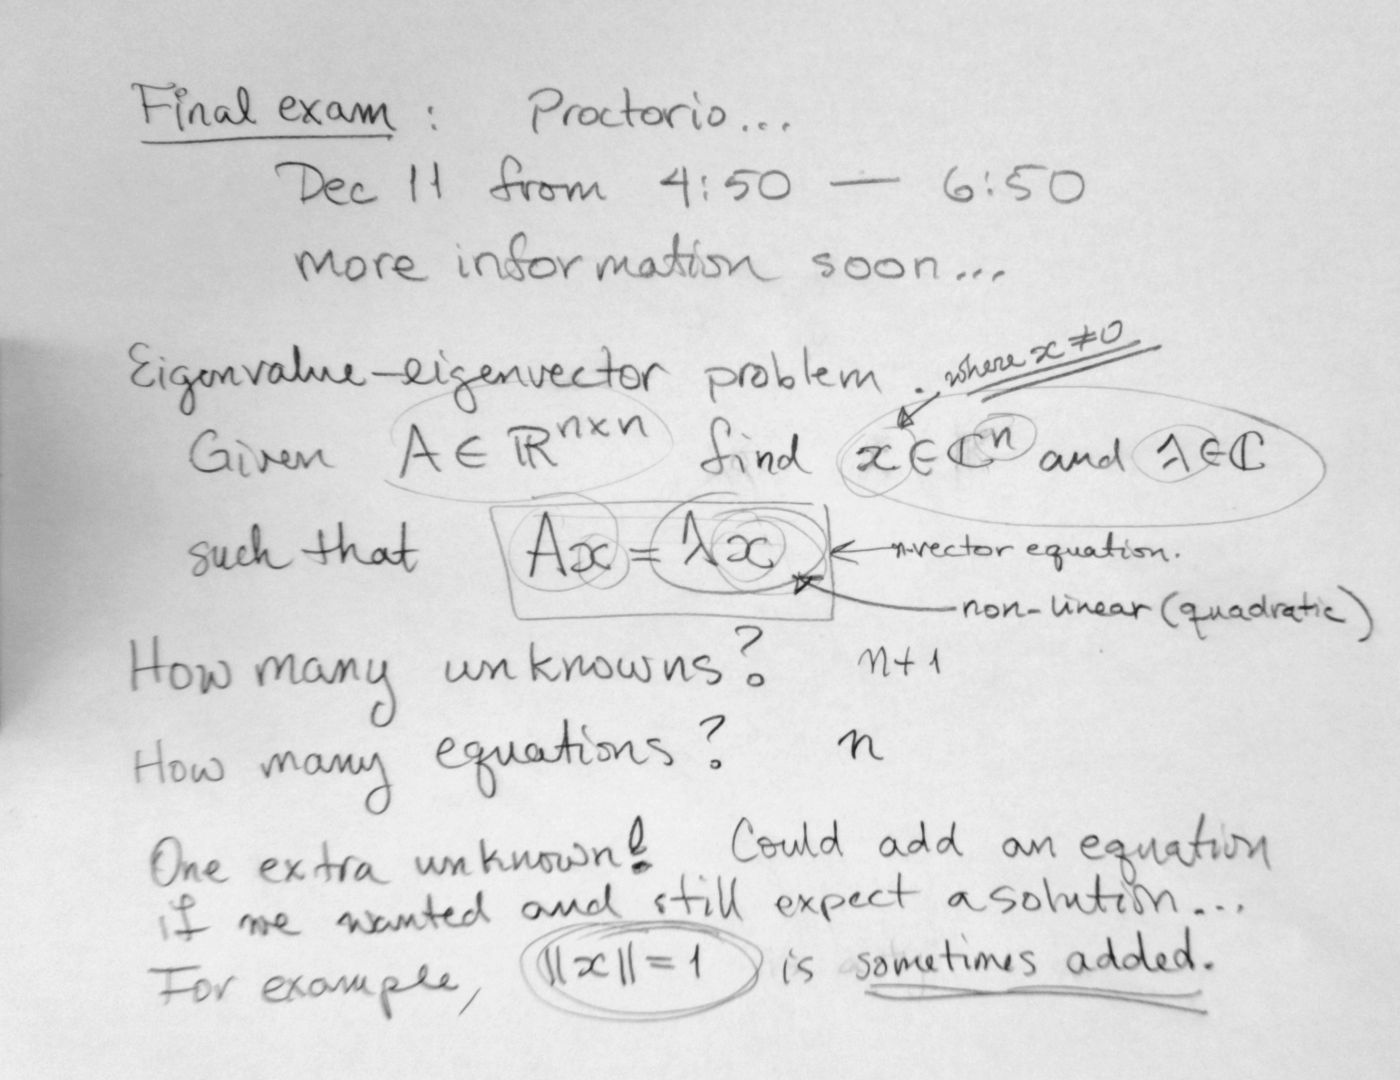 Final exam : Proctorio...
Dec 11 from 4:50 — 6:50
more information soon...
Eigenvalue-eigenvector problem. where x ≠ 0
Given A ∈ ℝⁿˣⁿ find x ∈ ℂⁿ and λ ∈ ℂ
such that Ax = λx ← n-vector equation.
non-linear (quadratic)
How many unknowns? n+1
How many equations? n
One extra unknown! Could add an equation
if we wanted and still expect a solution...
For example, ||x|| = 1 is sometimes added.